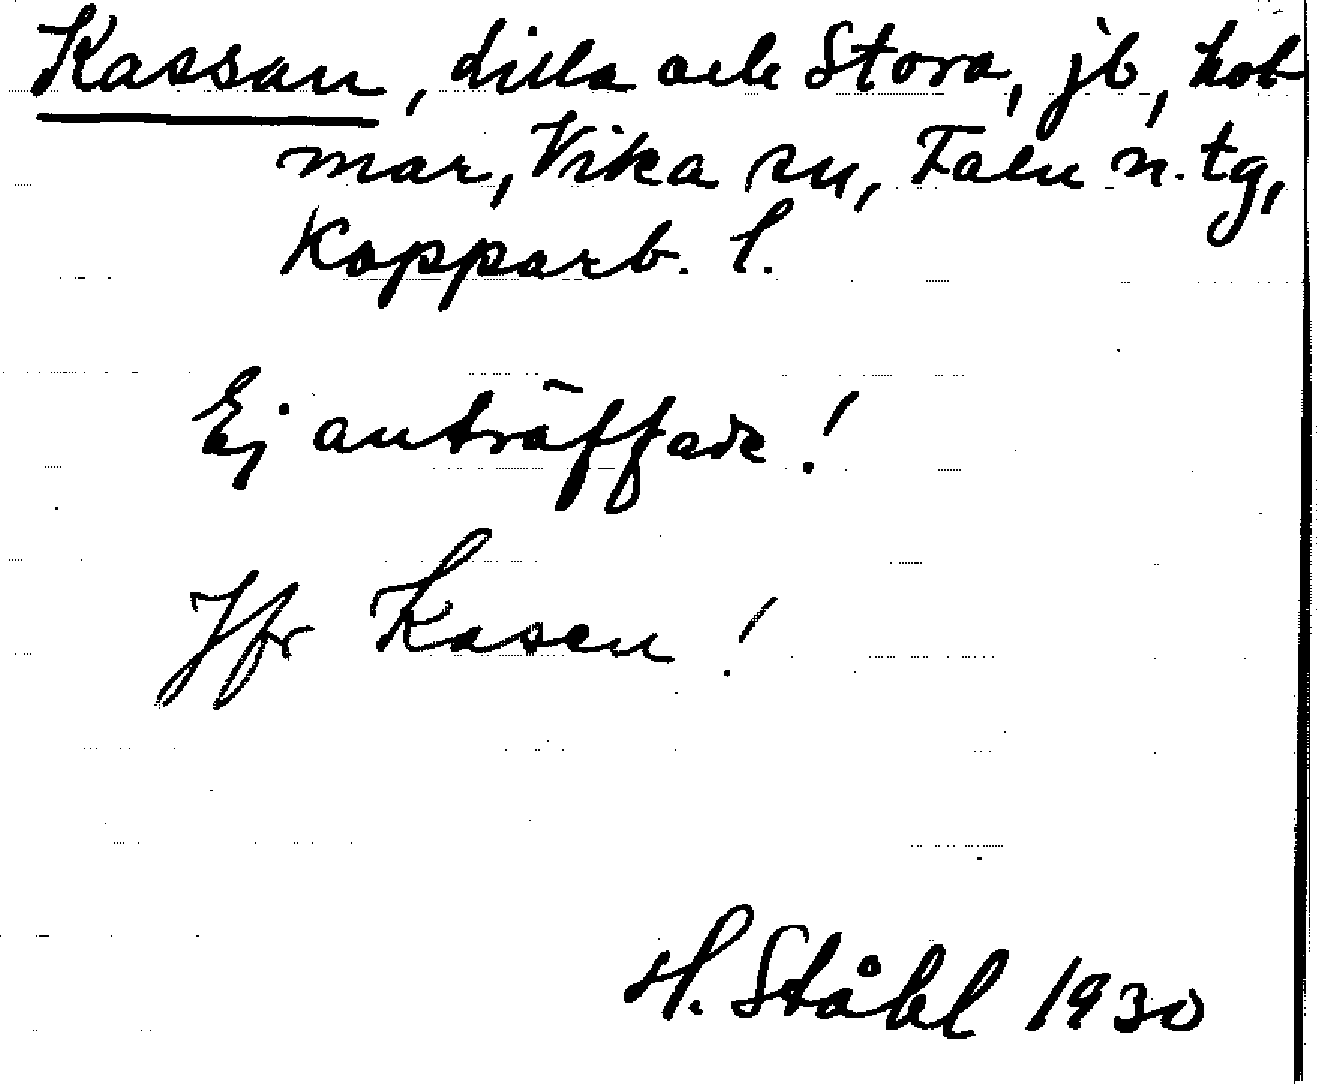 Kassan, Lilla och Stora, jb, hol-
mar, Vika sn, Falu n. tg,
Kopparb. l.
Ej anträffade!
Jfr Kasen!
H. Ståhl 1930